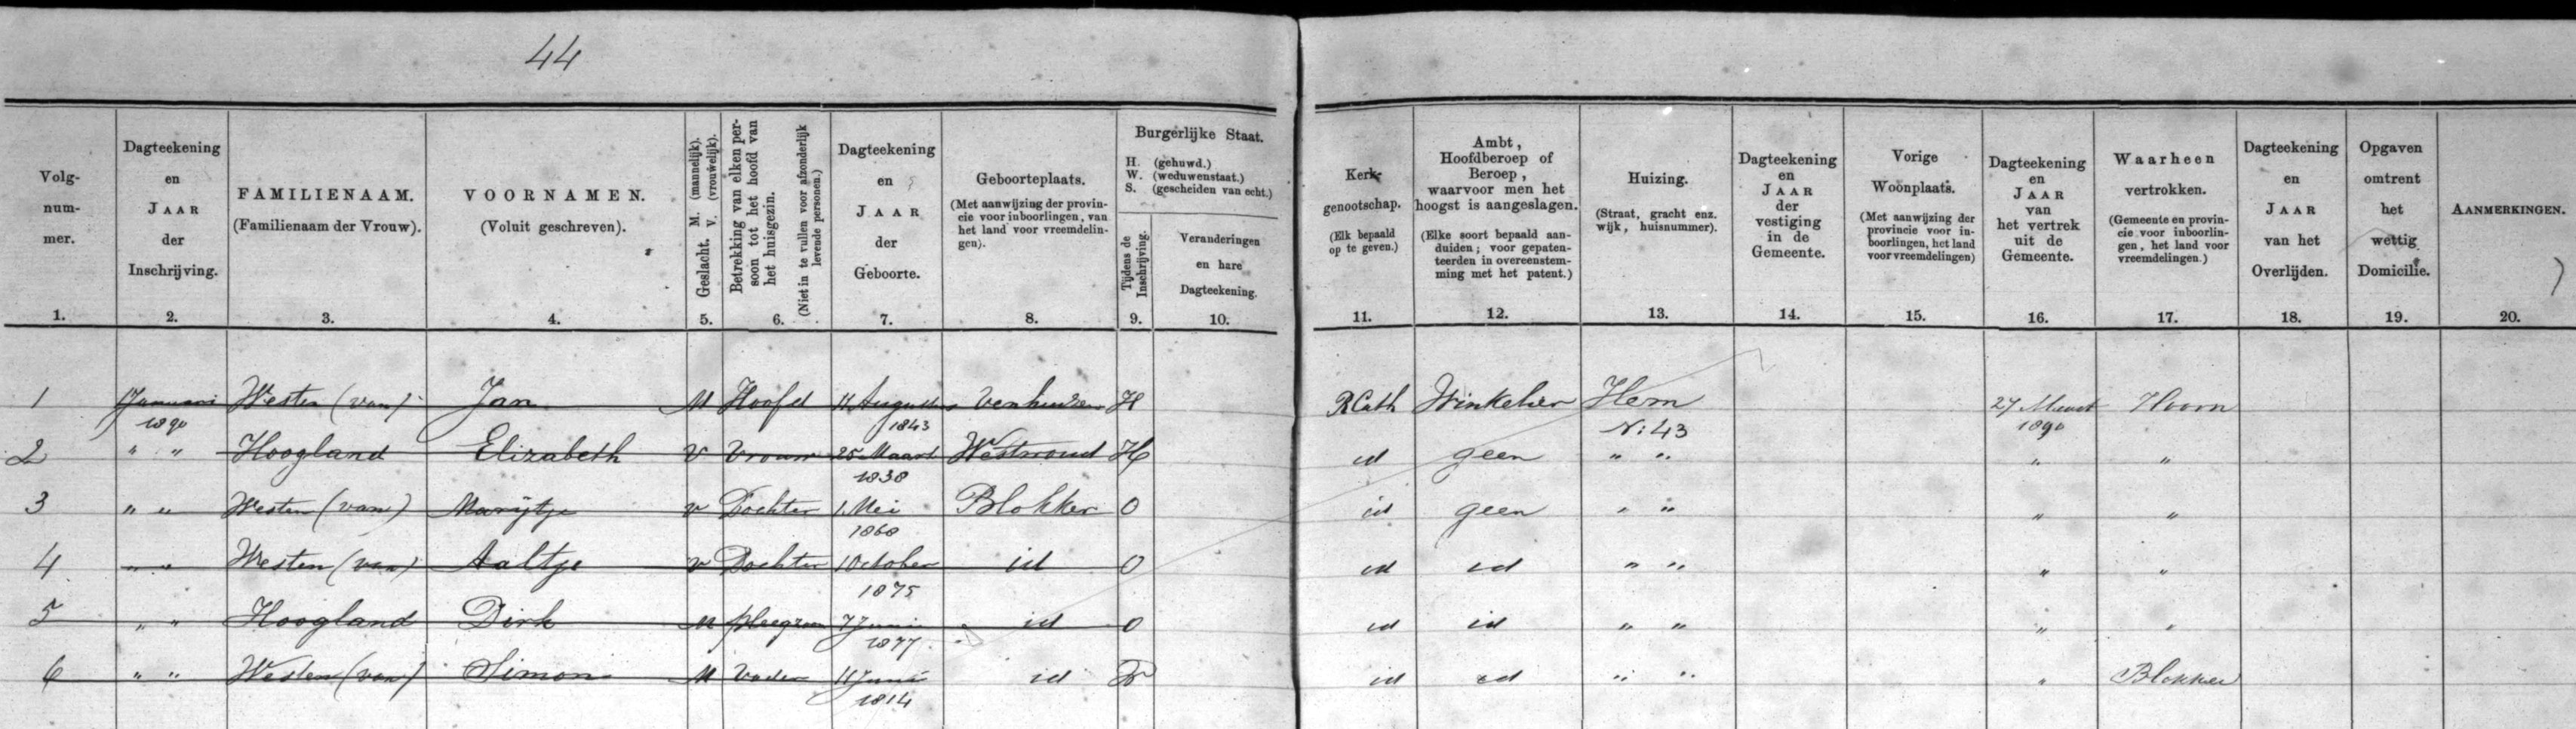 44
Volg-
num-
mer.
1.
Dagteekening
en
JAAR
der
Inschrijving.
2.
FAMILIENAAM.
(Familienaam der Vrouw).
3.
VOORNAMEN.
(Voluit geschreven).
4.
Geslacht. M. (mannelijk). V. (vrouwelijk).
5.
Betrekking van elken per-
soon tot het hoofd van
het huisgezin.
(Niet in te vullen voor afzonderlijk
levende personen.)
6.
Dagteekening
en
JAAR
der
Geboorte.
7.
Geboorteplaats.
(Met aanwijzing der provin-
cie voor inboorlingen, van
het land voor vreemdelin-
gen).
8.
Burgerlijke Staat.
H. (gehuwd.)
W. (weduwenstaat.)
S. (gescheiden van echt.)
Tijdens de
Inschrijving.
9.
Veranderingen
en hare
Dagteekening.
10.
Kerk-
genootschap.
(Elk bepaald
op te geven.)
11.
Ambt,
Hoofdberoep of
Beroep,
waarvoor men het
hoogst is aangeslagen.
(Elke soort bepaald aan-
duiden; voor gepaten-
teerden in overeenstem-
ming met het patent.)
12.
Huizing.
(Straat, gracht enz.
wijk, huisnummer).
13.
Dagteekening
en
JAAR
der
vestiging
in de
Gemeente.
14.
Vorige
Woonplaats.
(Met aanwijzing der
provincie voor in-
boorlingen, het land
voor vreemdelingen)
15.
Dagteekening
en
JAAR
van
het vertrek
uit de
Gemeente.
16.
Waarheen
vertrokken.
(Gemeente en provin-
cie voor inboorlin-
gen, het land voor
vreemdelingen.)
17.
Dagteekening
en
JAAR
van het
Overlijden.
18.
Opgaven
omtrent
het
wettig
Domicilie.
19.
AANMERKINGEN.
20.
1 1 Januari Westen (van) Jan M Hoofd 11 Augustus Venhuizen H R Cath Winkelier Hem 27 Maart Hoorn
1890 1843 N: 43 1890
2 " " Hoogland Elizabeth V Vrouw 25 Maart Westwoud H id geen " " " "
1838
3 " " Westen (van) Marijtje v Dochter 1 Mei Blokker O id geen " " " "
1868
4 " " Westen (van) Aaltje v Dochter 1 October id O id id " " " "
1875
5 " " Hoogland Dirk M pleegzoon 7 Juni id O id id " " " "
1877
6 " " Westen (van) Simon M Vader 11 Juni id W id id " " " Blokker
1814